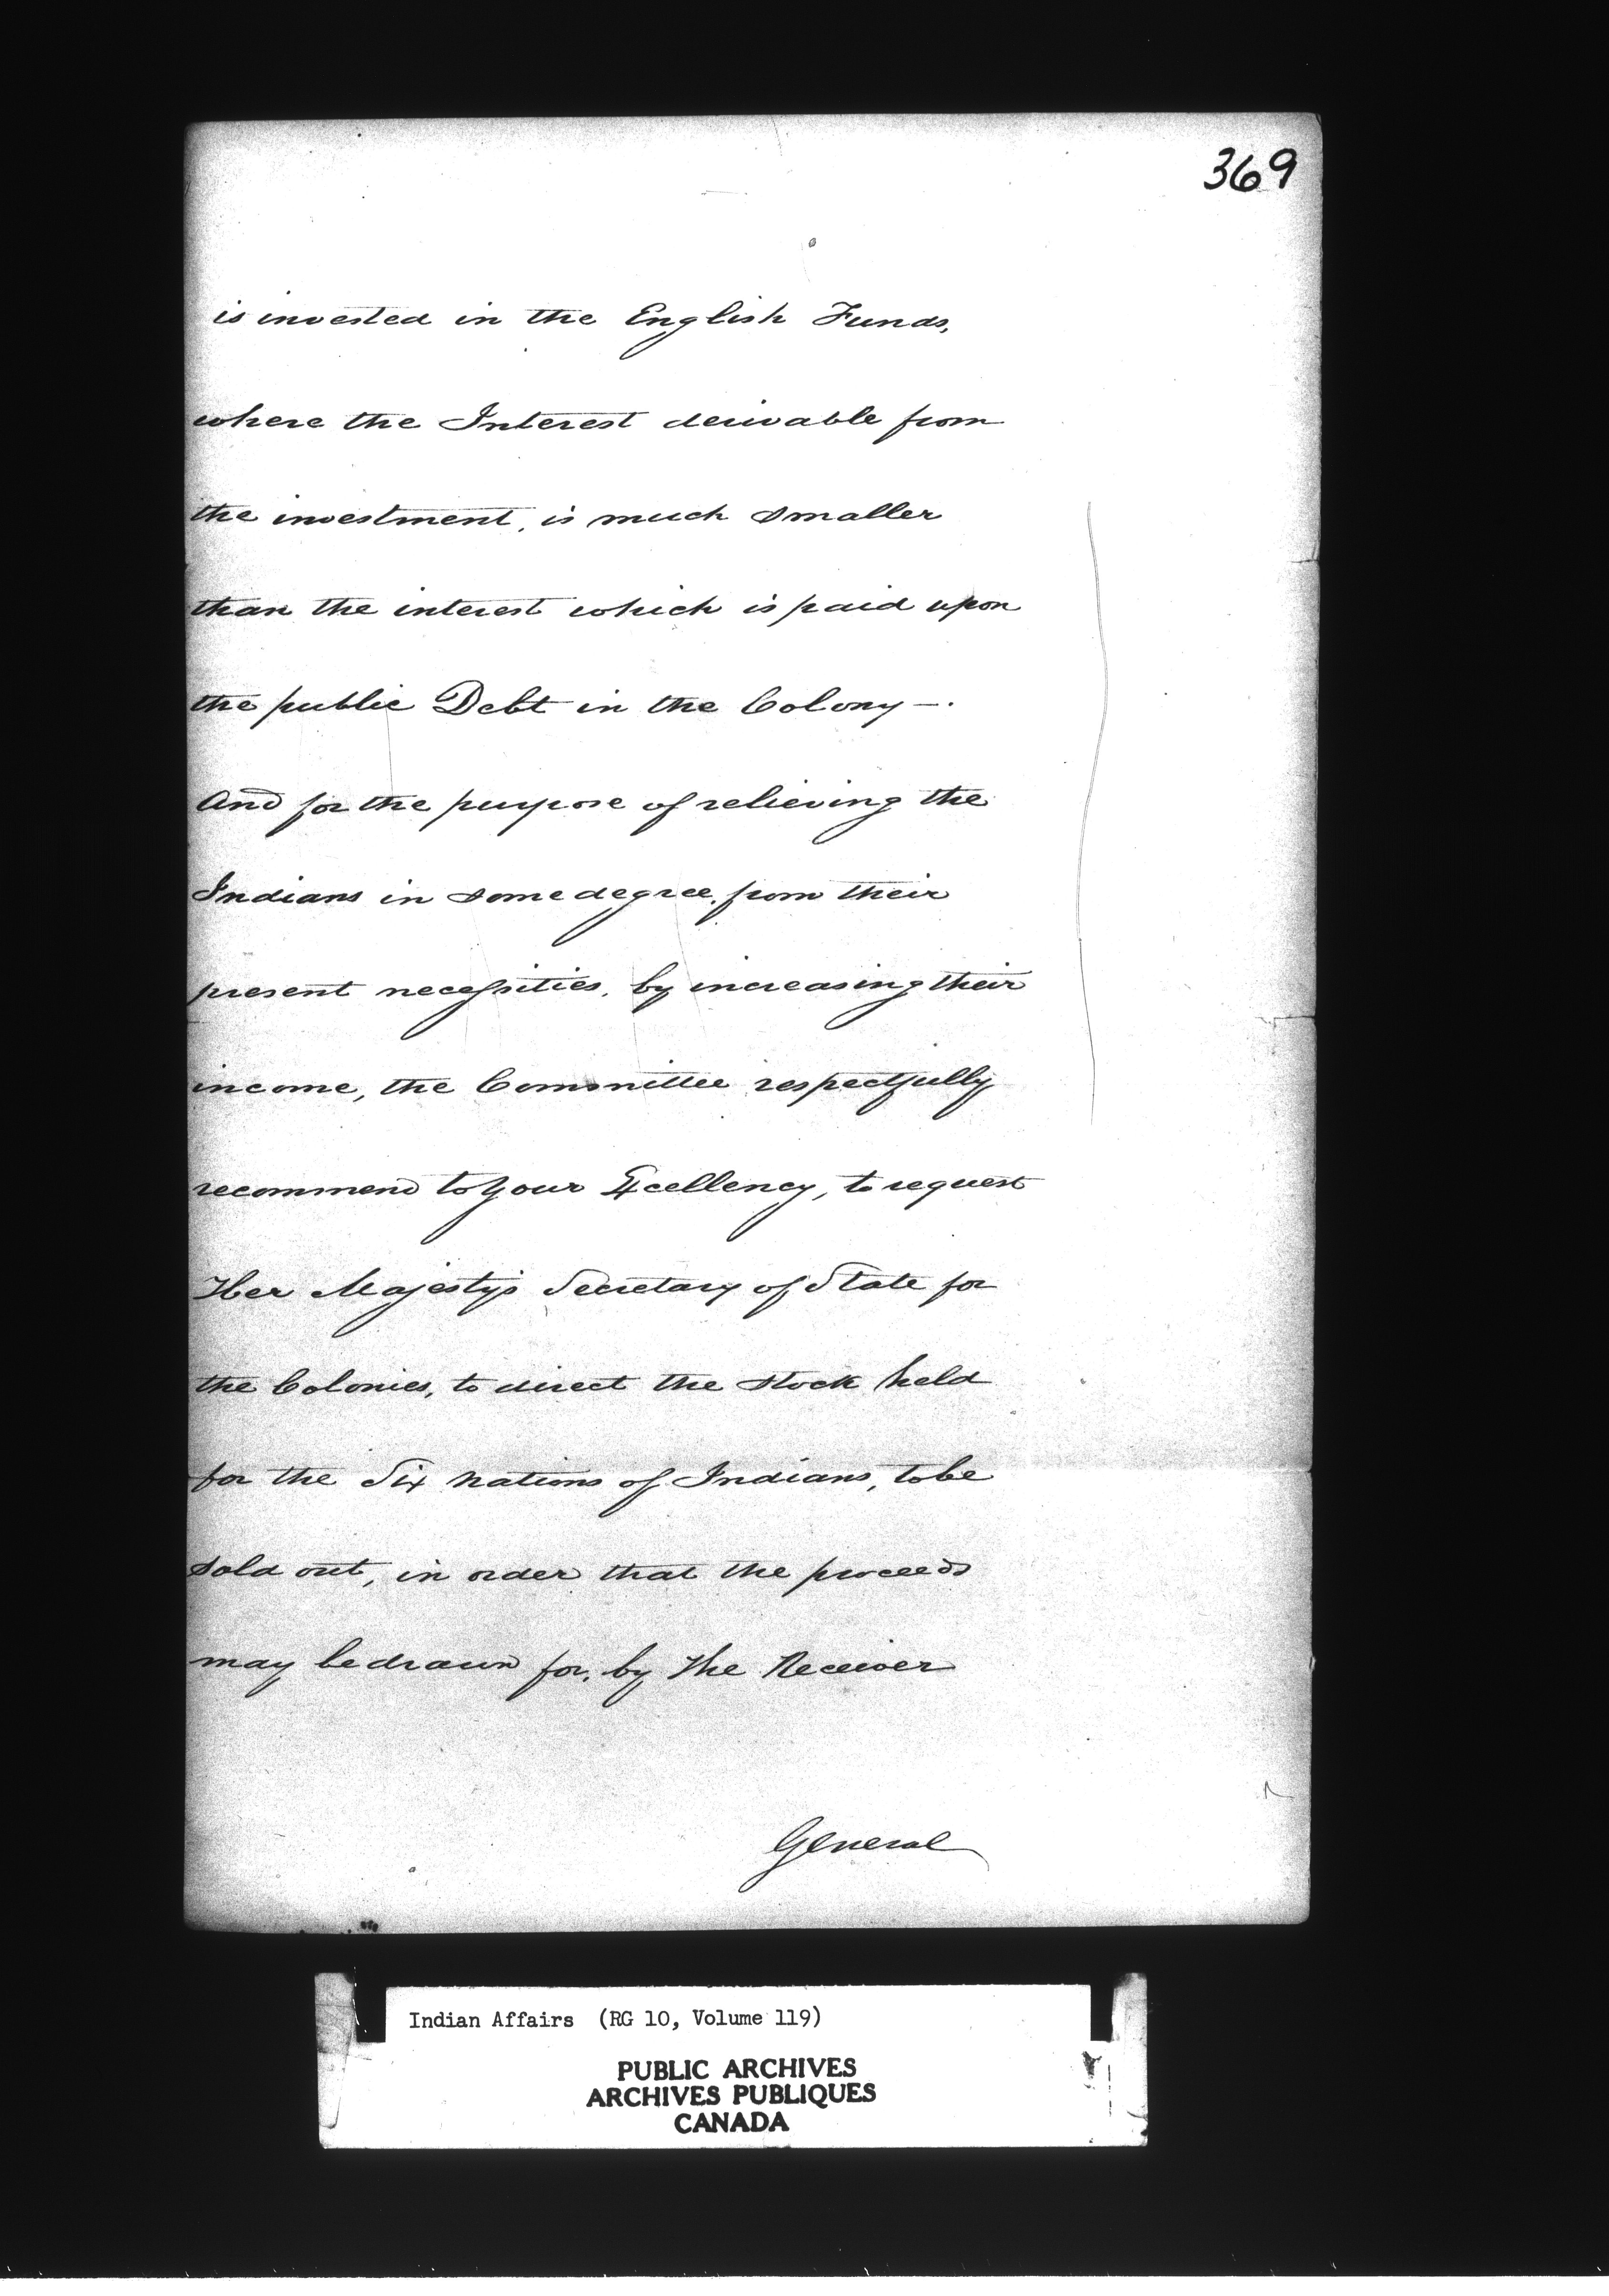 369
is invested in the English Funds,
where the Interest derivable from
the investment, is much smaller
than the interest which is paid upon
the public Debt in the Colony —.
And for the purpose of relieving the
Indians in some degree, from their
present necessities, by increasing their
income, the Committee respectfully
recommend to Your Excellency, to request
Her Majesty's Secretary of State for
the Colonies, to direct the stock held
for the Six Nations of Indians, to be
sold out, in order that the proceeds
may be drawn for, by the Receiver
General
Indian Affairs (RG 10, Volume 119)
PUBLIC ARCHIVES
ARCHIVES PUBLIQUES
CANADA